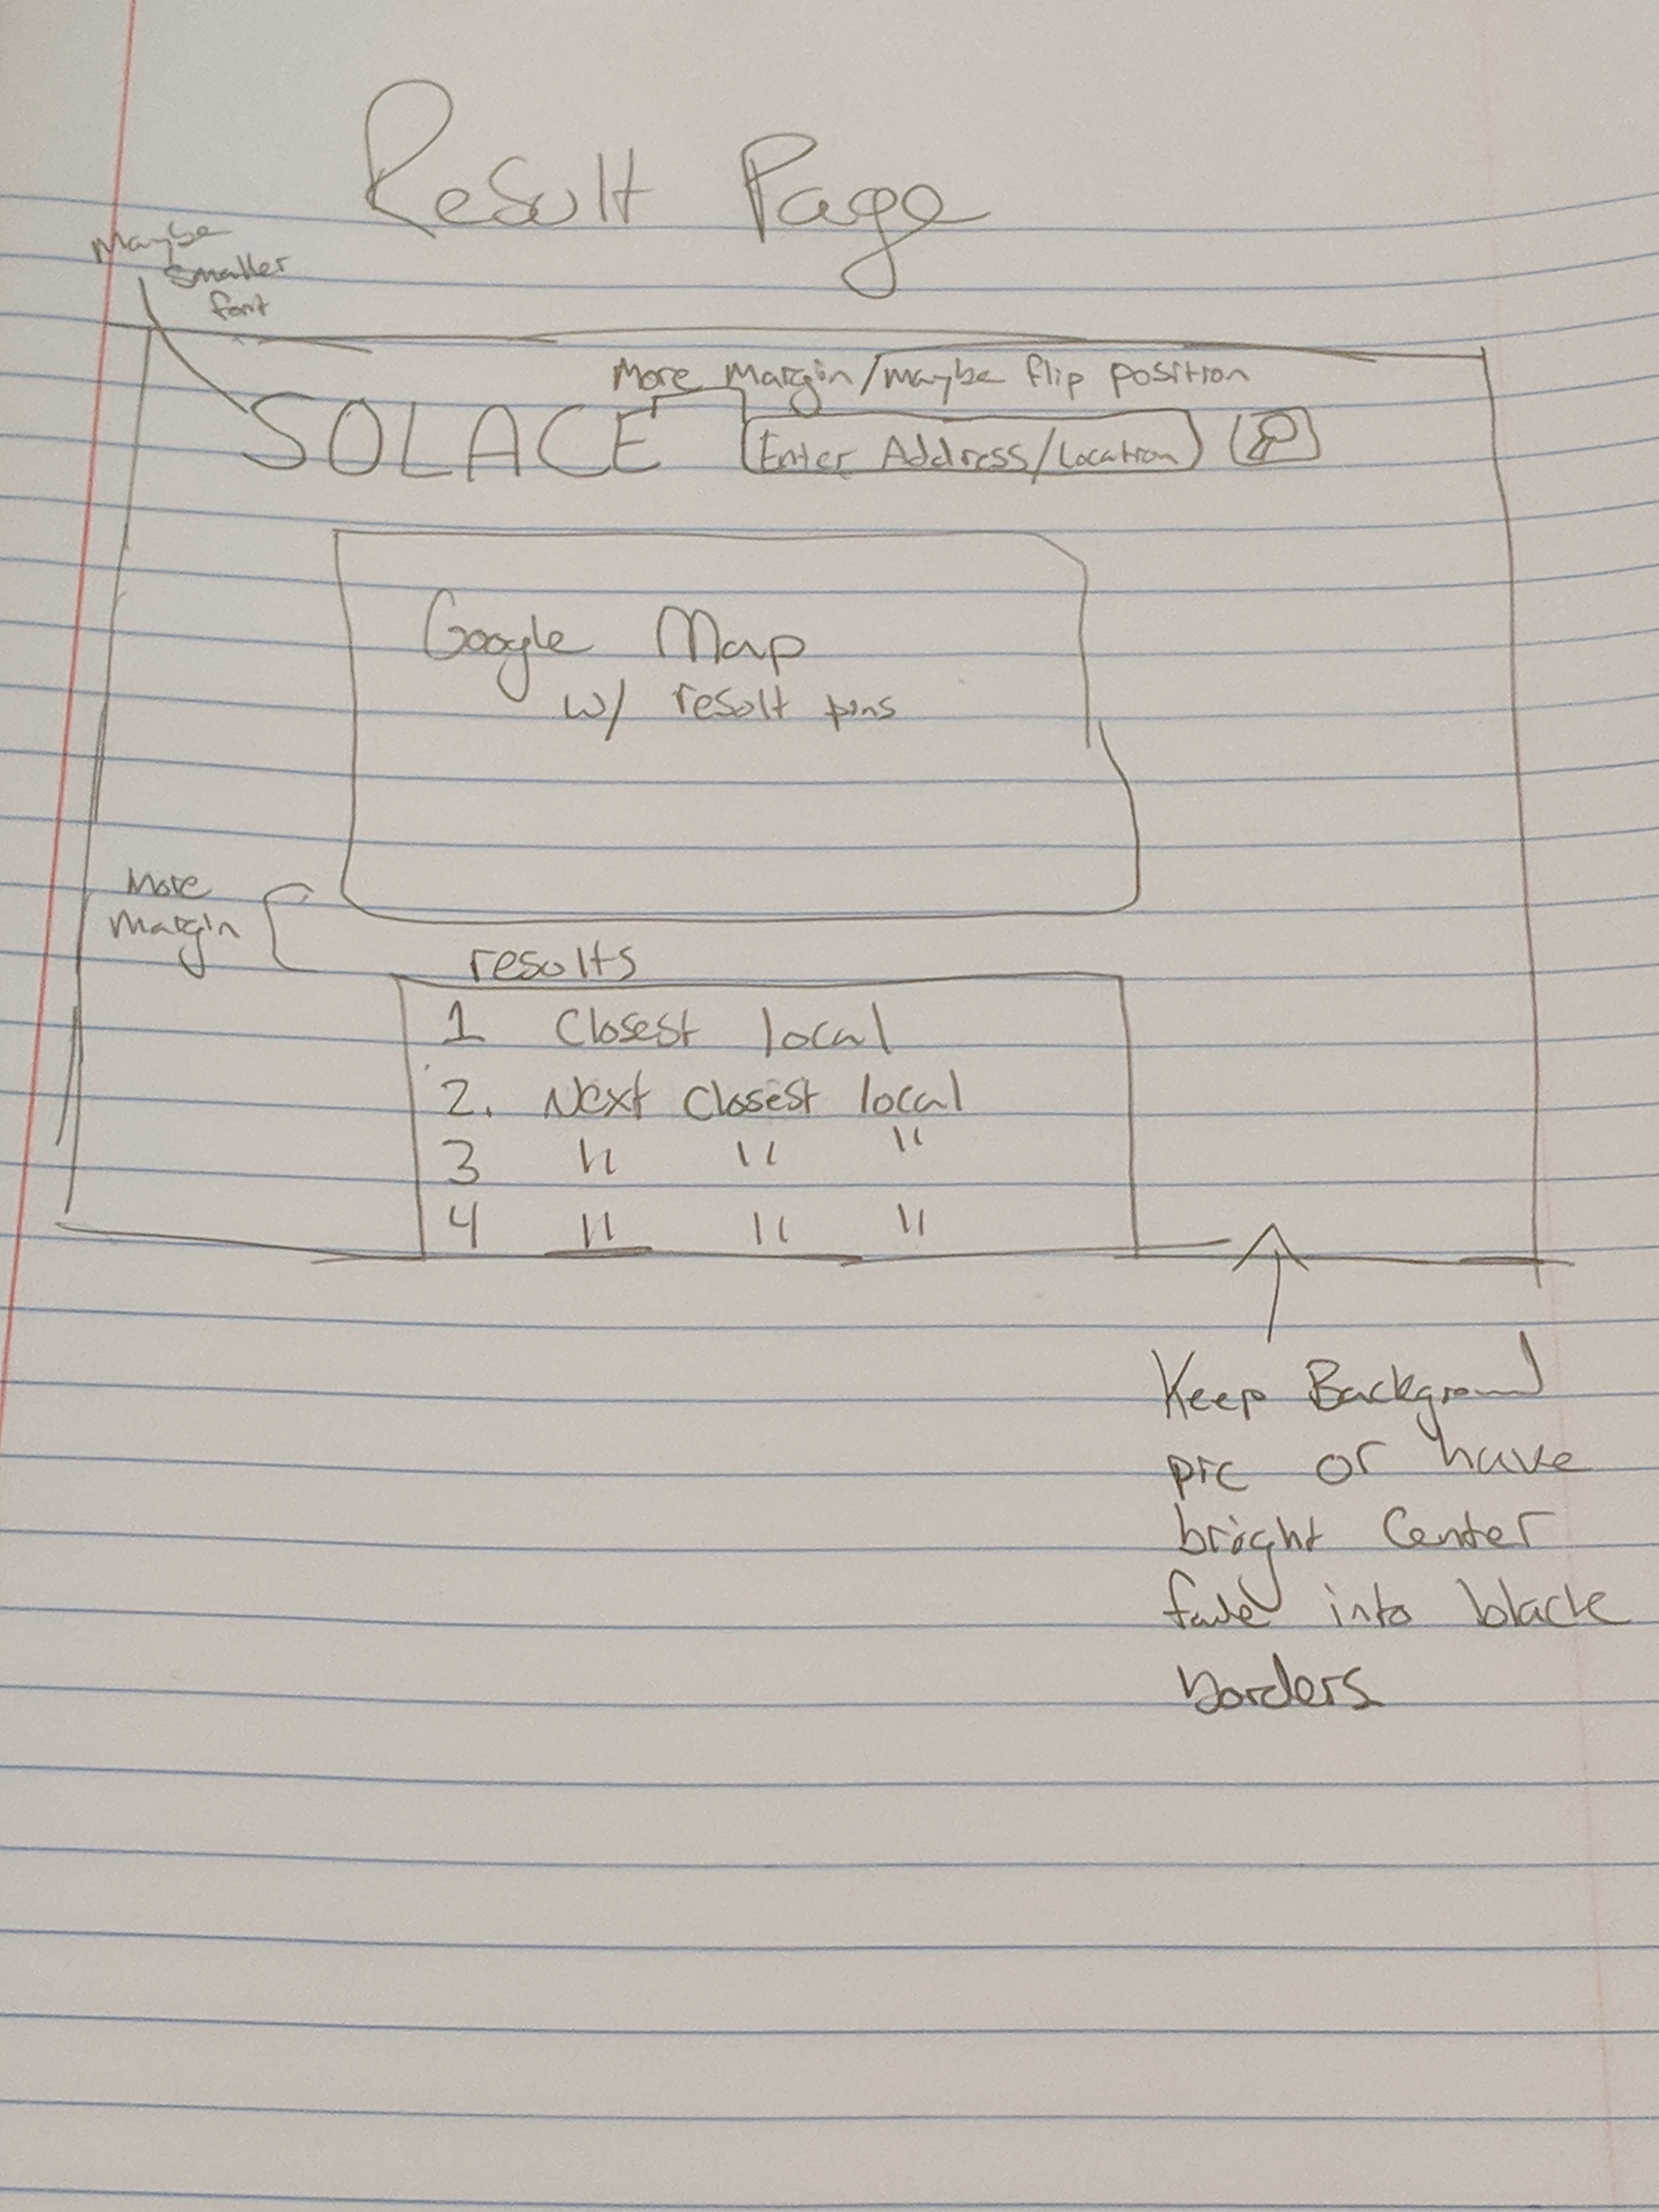 Result Page
Maybe
smaller
font
More Margin/maybe flip position
SOLACE
Enter Address/Location
Google Map
w/ result pins
More
Margin
results
1 Closest local
2. Next closest local
3 " " "
4 " " "
Keep Background
pic or have
bright center
fade into black
borders